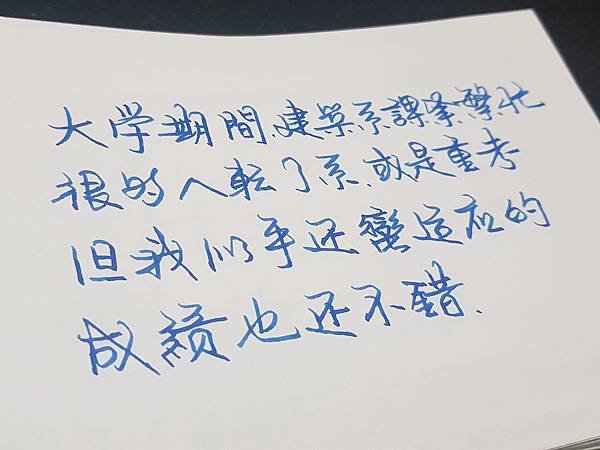 大学期間建築系課業繁忙
很的人転了系.或是重考
但我似乎还蠻适应的
成績也还不錯.